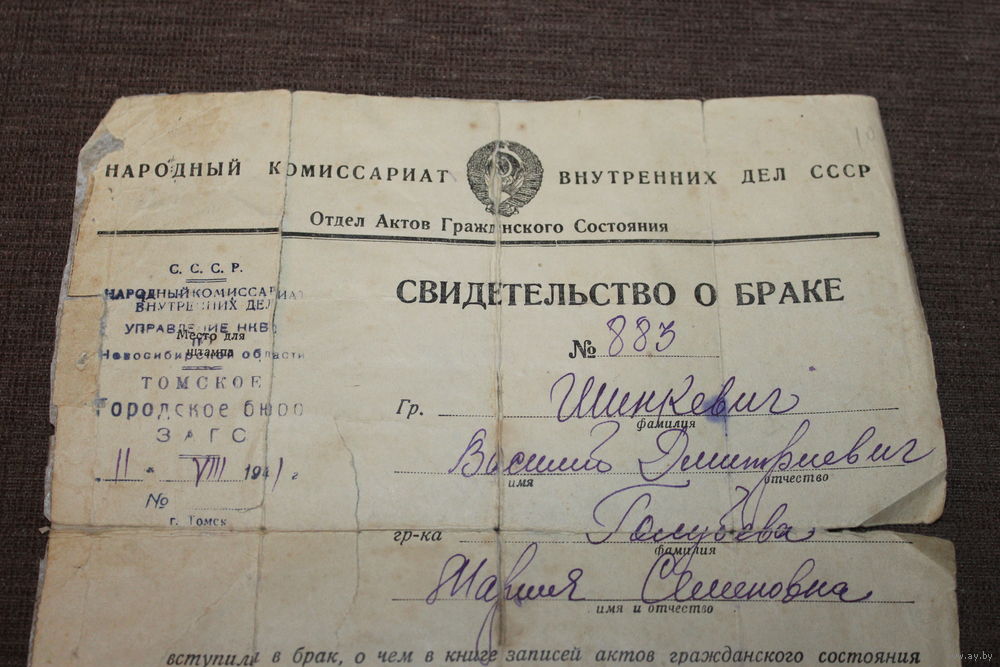 10
НАРОДНЫЙ КОМИССАРИАТ ВНУТРЕННИХ ДЕЛ СССР
Отдел Актов Гражданского Состояния
С. С. С. Р.
НАРОДНЫЙ КОМИССАРИАТ
ВНУТРЕННИХ ДЕЛ
УПРАВЛЕНИЕ НКВД
Место для
штампа
Новосибирской области
ТОМСКОЕ
Городское бюро
ЗАГС
11 " VIII 1941 г
№
г. Томск
СВИДЕТЕЛЬСТВО О БРАКЕ
№ 883
Гр. Шинкевич
фамилия
Василий Дмитриевич
имя отчество
гр-ка Голубева
фамилия
Мария Семеновна
имя и отчество
вступили в брак, о чем в книге записей актов гражданского состояния
www.ay.by